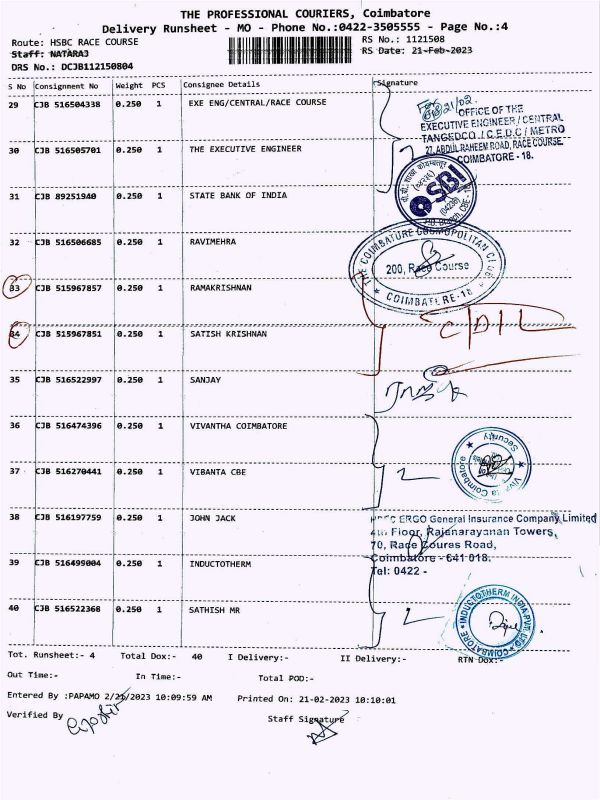 THE PROFESSIONAL COURIERS, Coimbatore
Delivery Runsheet - MO - Phone No.:0422-3505555 - Page No.:4
Route: HSBC RACE COURSE
RS No.: 1121508
Staff: NATARAJ
RS Date: 21-Feb-2023
DRS No.: DCJB112150804
S No Consignment No Weight PCS Consignee Details Signature
29 CJB 516504338 0.250 1 EXE ENG/CENTRAL/RACE COURSE
21/02.
OFFICE OF THE
EXECUTIVE ENGINEER / CENTRAL
TANGEDCO / C.E.D.C / METRO
27, ABDUL RAHEEM ROAD, RACE COURSE,
COIMBATORE - 18.
30 CJB 516505701 0.250 1 THE EXECUTIVE ENGINEER
31 CJB 89251940 0.250 1 STATE BANK OF INDIA
SBI
32 CJB 516506685 0.250 1 RAVIMEHRA
THE COIMBATORE COSMOPOLITAN CLUB
200, Race Course
COIMBATORE-18
33 CJB 515967857 0.250 1 RAMAKRISHNAN
34 CJB 515967851 0.250 1 SATISH KRISHNAN
35 CJB 516522997 0.250 1 SANJAY
36 CJB 516474396 0.250 1 VIVANTHA COIMBATORE
Security
Vivanta Coimbatore
37 CJB 516270441 0.250 1 VIBANTA CBE
2
38 CJB 516197759 0.250 1 JOHN JACK
HDFC ERGO General Insurance Company Limited
4th Floor, Rajanarayanan Towers,
70, Race Couras Road,
Coimbatore - 641 018.
Tel: 0422 -
39 CJB 516499004 0.250 1 INDUCTOTHERM
40 CJB 516522368 0.250 1 SATHISH MR
2
INDUCTOTHERM INDIA PVT. LTD
COIMBATORE
Tot. Runsheet:- 4 Total Dox:- 40 I Delivery:- II Delivery:- RTN Dox:-
Out Time:- In Time:- Total POD:-
Entered By :PAPAMO 2/21/2023 10:09:59 AM Printed On: 21-02-2023 10:10:01
Verified By Staff Signature